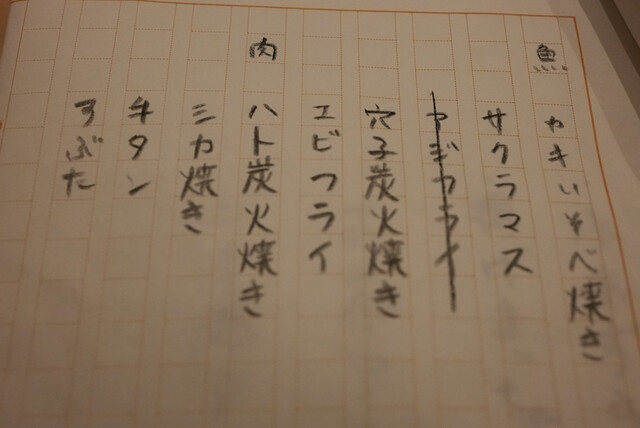 魚
カキいそべ焼き
サクラマス
穴子炭火焼き
エビフライ
肉
ハト炭火焼き
シカ焼き
牛タン
すぶた